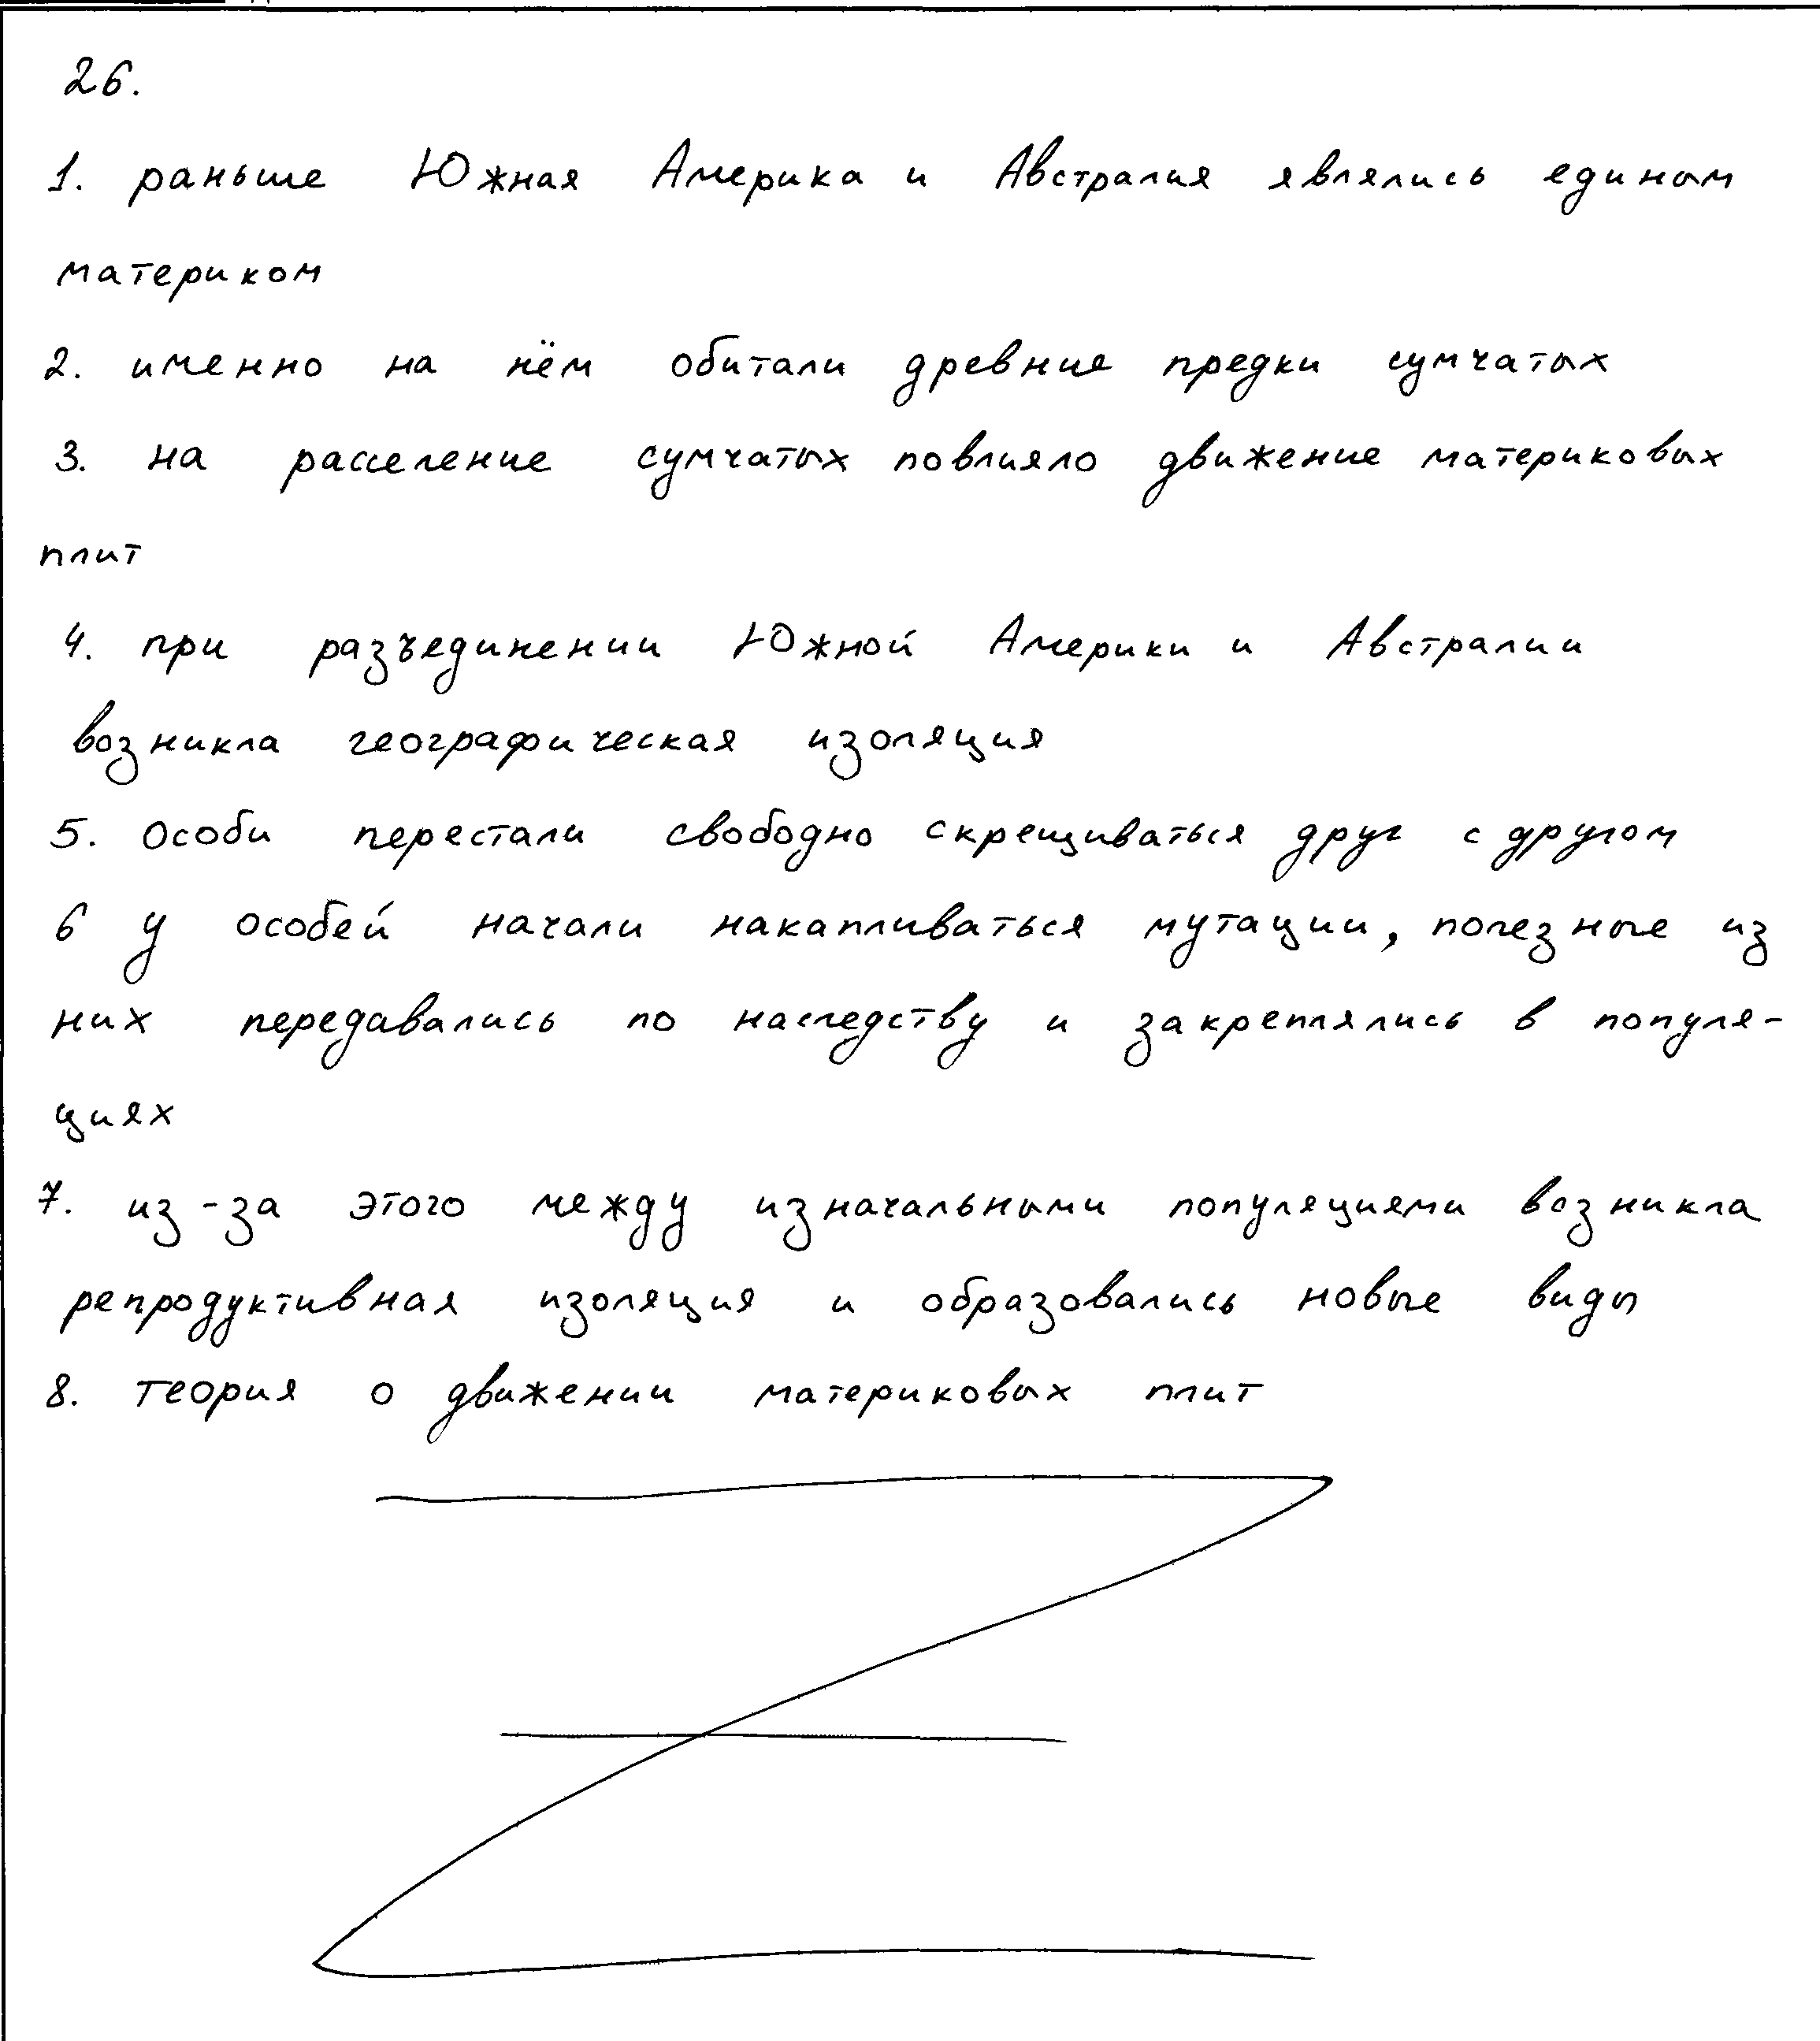 26.
1. раньше Южная Америка и Австралия являлись единым
материком
2. именно на нём обитали древние предки сумчатых
3. на расселение сумчатых повлияло движение материковых
плит
4. при разъединении Южной Америки и Австралии
возникла географическая изоляция
5. особи перестали свободно скрещиваться друг с другом
6 у особей начали накапливаться мутации, полезные из
них передавались по наследству и закреплялись в популя-
циях
7. из-за этого между изначальными популяциями возникла
репродуктивная изоляция и образовались новые виды
8. теория о движении материковых плит